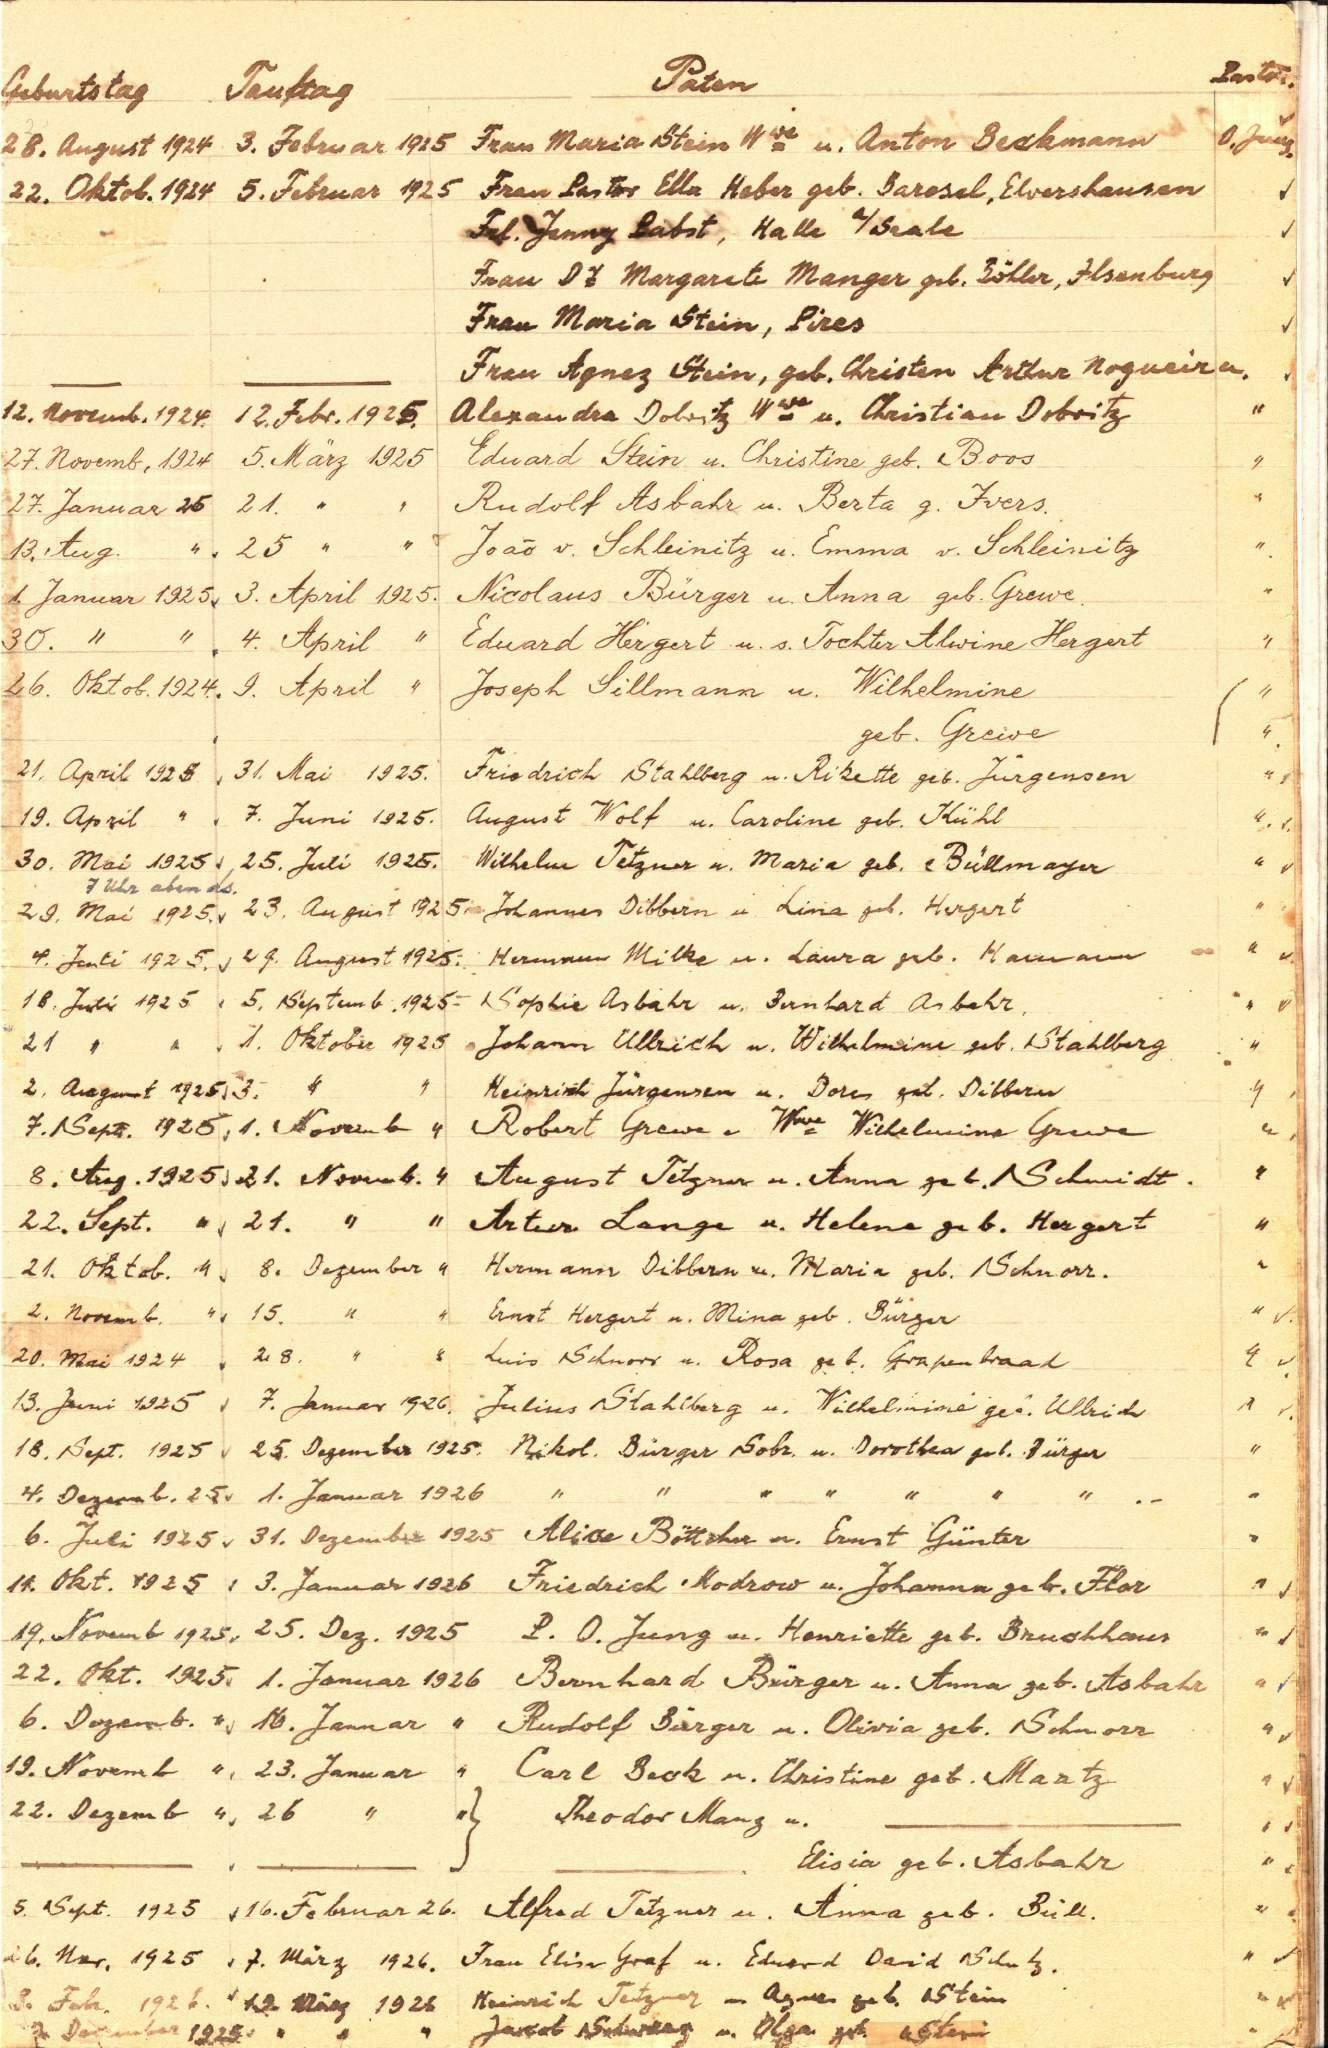 Geburtstag Tauftag Paten Pastor.
28. August 1924 3. Februar 1925 Frau Maria Stein Wwe u. Anton Beckmann O. Jung.
22. Oktob. 1924 5. Februar 1925 Frau Pastor Ella Heber geb. Baresel, Elvershausen
Frl. Jenny Pabst, Halle a/Saale
Frau Dr Margarete Manger geb. Böhler, Ilsenburg
Frau Maria Stein, Pires
Frau Agnez Stein, geb. Christen Arthur Nogueira.
12. Novemb. 1924. 12. Febr. 1925. Alexandra Dobritz Wwe u. Christian Dobritz "
27. Novemb. 1924 5. März 1925 Eduard Stein u. Christine geb. Boos "
27. Januar 25 21. " " Rudolf Asbahr u. Berta g. Ivers. "
13. Aug. " 25 " " João v. Schleinitz u. Emma v. Schleinitz "
1 Januar 1925 3. April 1925. Nicolaus Bürger u. Anna geb. Grewe. "
30. " " 4. April " Eduard Hergert u. s. Tochter Alwine Hergert "
26. Oktob. 1924. 9. April " Joseph Sillmann u. Wilhelmine "
geb. Grewe "
21. April 1925 31. Mai 1925. Friedrich Stahlberg u. Rikette geb. Jürgensen "
19. April " 7. Juni 1925. August Wolf u. Caroline geb. Kühl "
30. Mai 1925 25. Juli 1925. Wilhelm Tetzner u. Maria geb. Büllmayer "
7 Uhr abends.
29. Mai 1925. 23. August 1925 Johannes Dibbern u Lina geb. Hergert "
4. Juli 1925. 29. August 1925. Hermann Milke u. Laura geb. Hamann "
18. Juli 1925 5. Septemb. 1925 Sophie Asbahr u. Bernhard Asbahr. "
21 " " 1. Oktober 1925 Johann Ullrich u. Wilhelmine geb. Stahlberg "
2. August 1925 3. " " Heinrich Jürgensen u. Dora geb. Dibbern "
7. Sept. 1925 1. Novemb " Robert Grewe u Wwe Wilhelmine Grewe "
8. Aug. 1925 21. Novemb. " August Tetzner u. Anna geb. Schmidt. "
22. Sept. " 21. " " Artur Lange u. Helene geb. Hergert "
21. Oktob. " 8. Dezember " Hermann Dibbern u. Maria geb. Schnorr. "
2. Novemb. " 15. " " Ernst Hergert u. Mina geb. Bürger "
20. Mai 1924 28. " " Luis Schnorr u. Rosa geb. Grapenbraad "
13. Juni 1925 7. Januar 1926. Julius Stahlberg u. Wilhelmine geb. Ullrich "
18. Sept. 1925 25. Dezember 1925. Nikol. Bürger Sobr. u. Dorothea geb. Bürger "
4. Dezemb. 25 1. Januar 1926 " " " " " " " "
6. Juli 1925 31. Dezember 1925 Alice Böttcher u. Ernst Günter "
11. Okt. 1925 3. Januar 1926 Friedrich Modrow u. Johanna geb. Flor "
19. Novemb 1925. 25. Dez. 1925 P. O. Jung u. Henriette geb. Bruchhaus "
22. Okt. 1925 1. Januar 1926 Bernhard Bürger u. Anna geb. Asbahr "
6. Dezemb. " 16. Januar " Rudolf Bürger u. Olivia geb. Schnorr "
19. Novemb " 23. Januar " Carl Beck u. Christine geb. Martz "
22. Dezemb " 26 " " Theodor Manz u. "
Elisia geb. Asbahr "
5. Sept. 1925 16. Februar 26. Alfred Tetzner u. Anna geb. Büll. "
26. Nov. 1925 7. März 1926. Frau Elisa Graf u. Eduard David Schutz. "
Febr. 1926. 12. März 1926 Heinrich Tetzner u Agnes geb. Stein "
Dezember 1925 " " " Jacob u. Olga geb. Stein